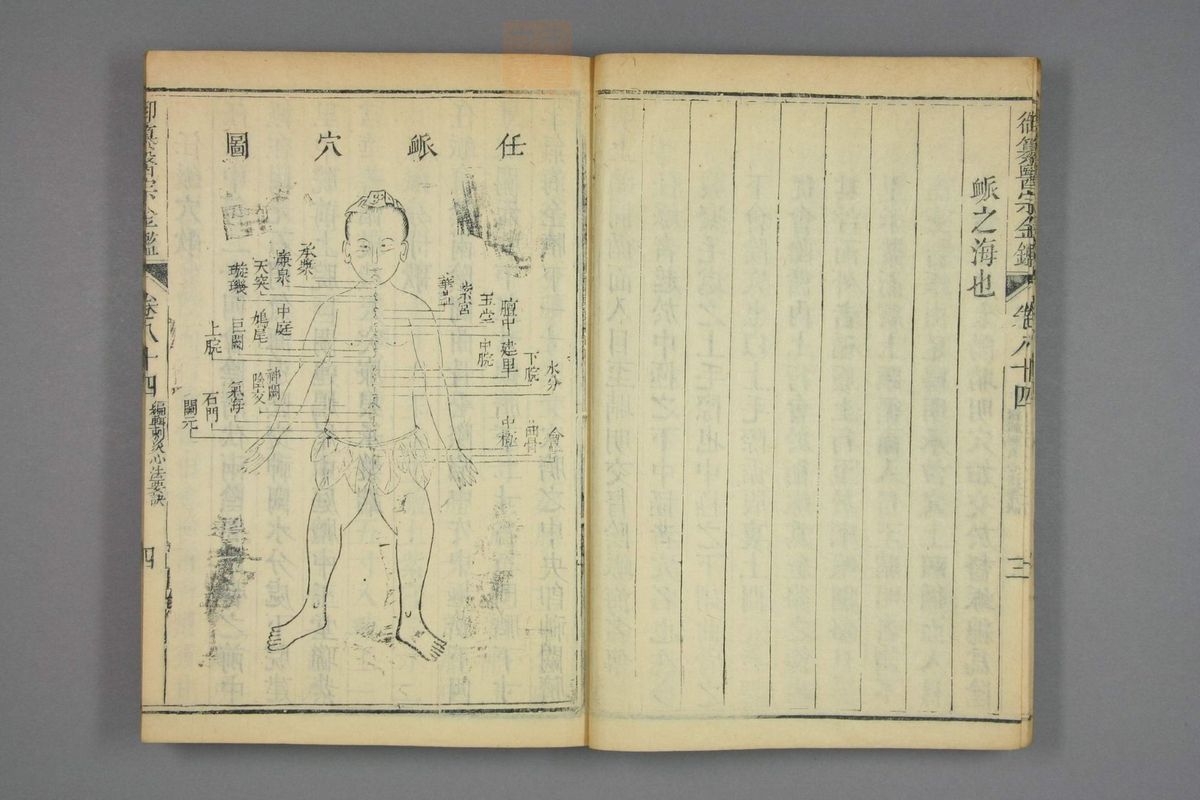 御纂醫宗金鑑
卷八十四
三
脈之海也
任脈穴圖
承漿
廉泉
天突
璇璣
華蓋
紫宮
玉堂
膻中
中庭
鳩尾
巨闕
上脘
中脘
建里
下脘
水分
神闕
陰交
氣海
石門
關元
中極
曲骨
會陰
御纂醫宗金鑑
卷八十四
編輯刺灸心法要訣
四